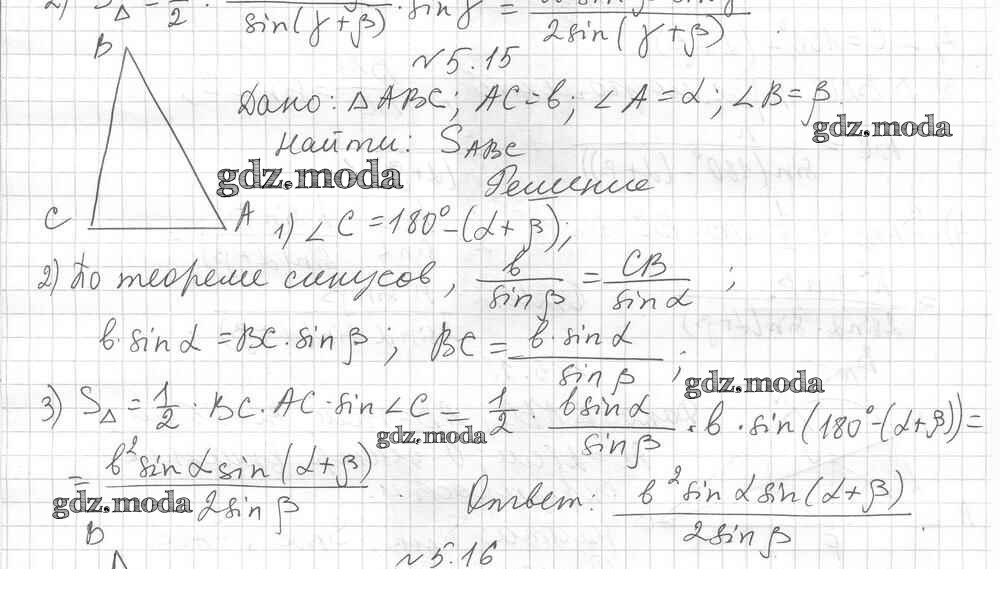 2) S△ = 1/2 · / sin(γ+β) · sin γ = / 2sin(γ+β) .
№5.15
B
Дано: △ABC; AC=b; ∠A=α; ∠B=β.
gdz.moda
Найти: S_ABC
gdz.moda
Решение
C A
1) ∠C = 180°-(α+β);
2) По теореме синусов, b / sin β = CB / sin α ;
b·sin α = BC·sin β ; BC = b·sin α / sin β ;
gdz.moda
3) S△ = 1/2 · BC·AC·sin∠C = 1/2 · b sin α / sin β · b · sin(180°-(α+β)) =
gdz.moda
= b² sin α sin(α+β) / 2 sin β . Ответ: b² sin α sin(α+β) / 2 sin β .
gdz.moda
B
№5.16